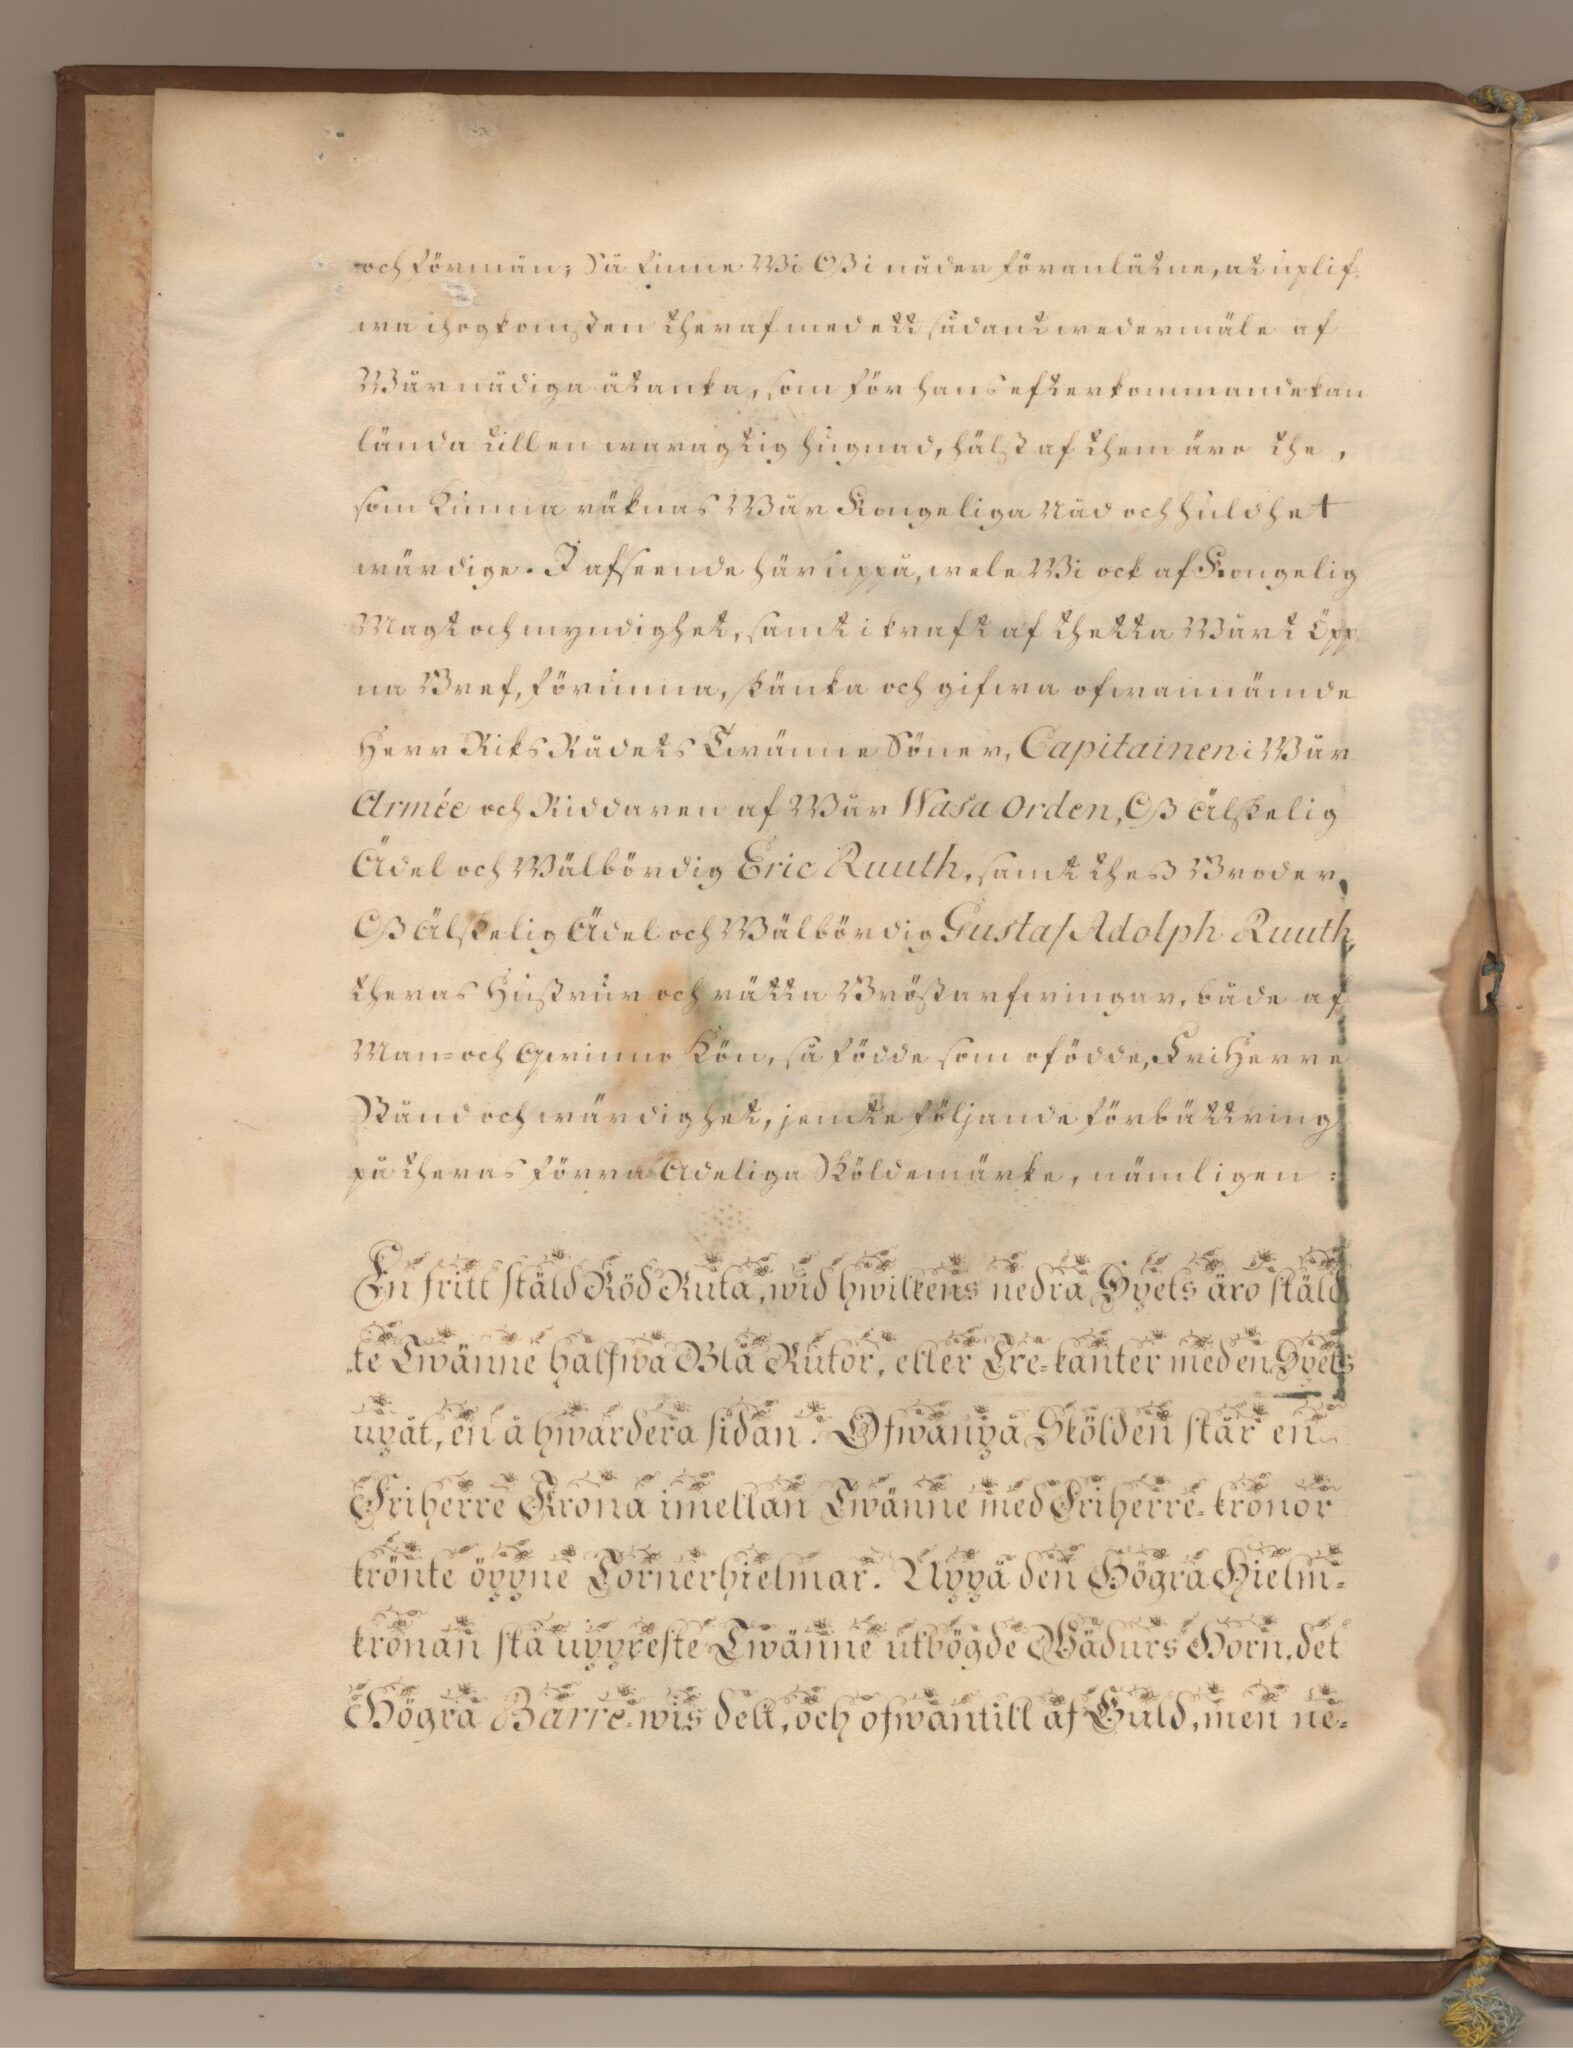 och förmån; Så finne Wi Oß i nåder föranlåtne, at uplif=
wa ihogkomsten theraf med ett sådant wedermäle af
Wår nådiga åtanka, som för hans efterkommande kan
lända till en waragtig hugnad, hälst af them äro the,
som kunna räknas Wår Kongeliga Nåd och huldhet
wärdige. I afseende häruppå, wele Wi ock af Kongelig
Magt och myndighet, samt i kraft af thetta Wårt Öpp
na Bref, förunna, skänka och gifwa ofwannämde
Herr RiksRådets Twänne Söner, Capitainen i Wår
Armée och Riddaren af Wår Wasa Orden, Oß Älskelig
Ädel och Wälbördig Eric Ruuth, samt theß Broder,
Oß Älskelig Ädel och Wälbördig Gustaf Adolph Ruuth,
theras Hustrur och rätta Bröstarfwingar, både af
Man= och Qwinno Kön, så födde som ofödde, FriHerre
Stånd och wärdighet, jemte följande förbättring
på theras förra Adeliga Sköldemärke, nämligen:
En fritt ställd Röd Ruta, wid hwilkens nedra Spets äro stäld
te Twänne halfwa Blå Rutor, eller Tre=kanter med en Spets
upåt, en å hwardera sidan. Ofwanpå Skölden står en
Friherre Krona imellan Twänne med Friherre=kronor
krönte öppne Tornerhielmar. Uppå den Högra Hielm=
kronan stå uppreste Twänne utbögde Wädurs Horn, det
Högra Barre=wis delt, och ofwantill af Guld, men ne=